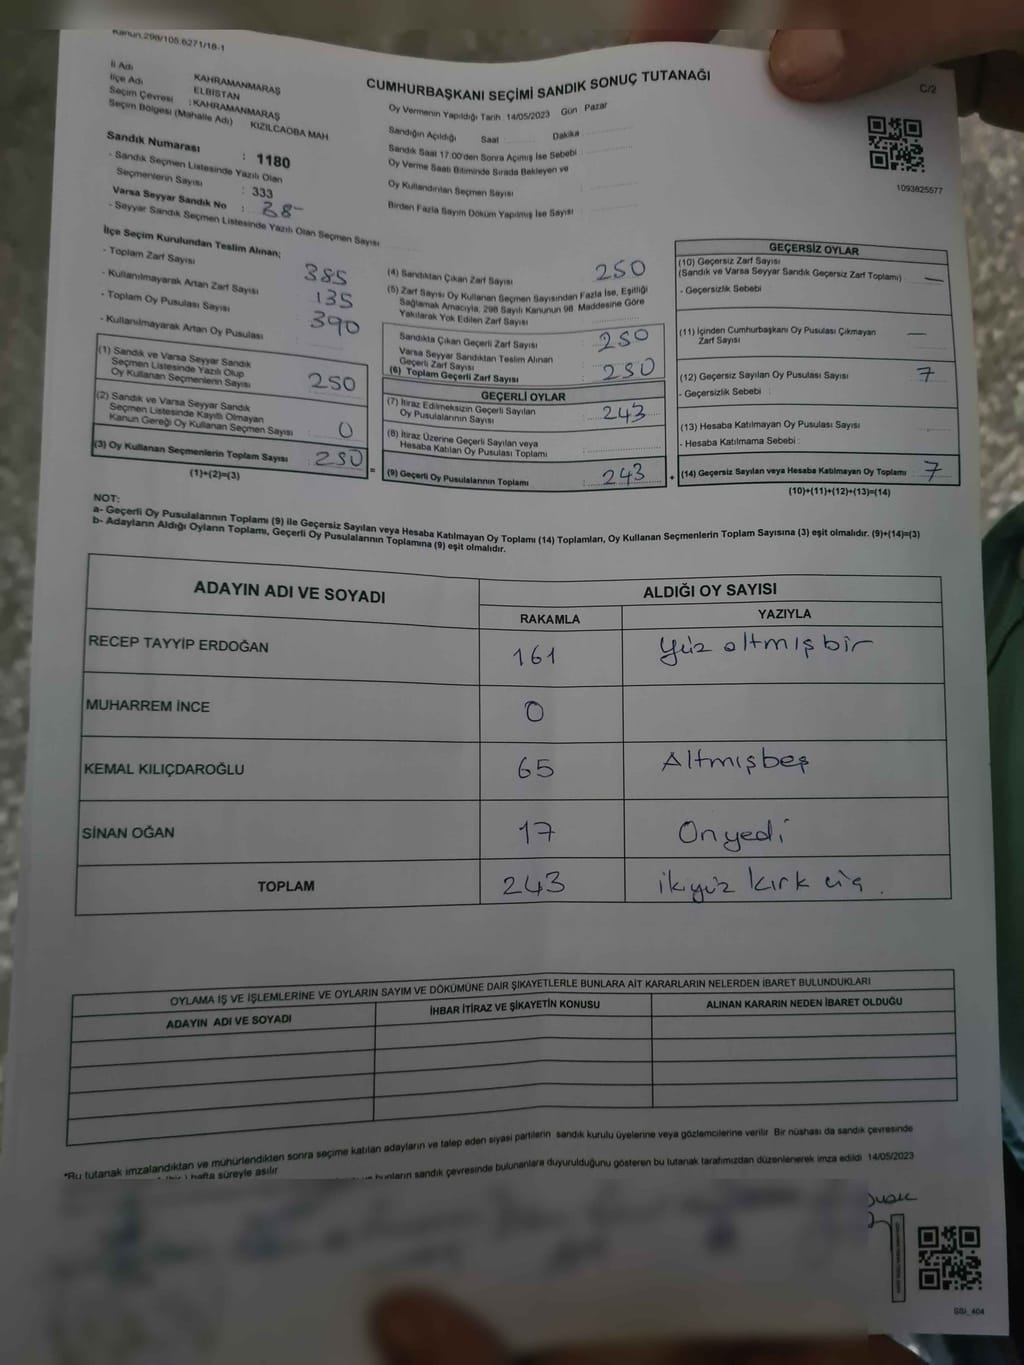 Kanun.298/105.6271/18-1
CUMHURBAŞKANI SEÇİMİ SANDIK SONUÇ TUTANAĞI
C/2
İl Adı KAHRAMANMARAŞ
İlçe Adı ELBİSTAN
Seçim Çevresi :KAHRAMANMARAŞ
Seçim Bölgesi (Mahalle Adı) KIZILCAOBA MAH
Sandık Numarası : 1180
- Sandık Seçmen Listesinde Yazılı Olan
Seçmenlerin Sayısı : 333
Varsa Seyyar Sandık No :
- Seyyar Sandık Seçmen Listesinde Yazılı Olan Seçmen Sayısı
Oy Vermenin Yapıldığı Tarih : 14/05/2023 Gün Pazar
Sandığın Açıldığı Saat Dakika
Sandık Saat 17:00'den Sonra Açımış İse Sebebi :
Oy Verme Saati Bitiminde Sırada Bekleyen ve
Oy Kullandırılan Seçmen Sayısı :
Birden Fazla Sayım Döküm Yapılmış İse Sayısı :
1093825577
İlçe Seçim Kurulundan Teslim Alınan;
- Toplam Zarf Sayısı 385
- Kullanılmayarak Artan Zarf Sayısı 135
- Toplam Oy Pusulası Sayısı 390
- Kullanılmayarak Artan Oy Pusulası :
(1) Sandık ve Varsa Seyyar Sandık
Seçmen Listesinde Yazılı Olup
Oy Kullanan Seçmenlerin Sayısı : 250
(2) Sandık ve Varsa Seyyar Sandık
Seçmen Listesinde Kayıtlı Olmayan
Kanun Gereği Oy Kullanan Seçmen Sayısı : 0
(3) Oy Kullanan Seçmenlerin Toplam Sayısı : 250
(1)+(2)=(3)
(4) Sandıktan Çıkan Zarf Sayısı : 250
(5) Zarf Sayısı Oy Kullanan Seçmen Sayısından Fazla İse, Eşitliği
Sağlamak Amacıyla, 298 Sayılı Kanunun 98. Maddesine Göre
Yakılarak Yok Edilen Zarf Sayısı
Sandıkta Çıkan Geçerli Zarf Sayısı : 250
Varsa Seyyar Sandıktan Teslim Alınan
Geçerli Zarf Sayısı :
(6) Toplam Geçerli Zarf Sayısı : 250
GEÇERLİ OYLAR
(7) İtiraz Edilmeksizin Geçerli Sayılan
Oy Pusulalarının Sayısı : 243
(8) İtiraz Üzerine Geçerli Sayılan veya
Hesaba Katılan Oy Pusulası Toplamı :
= (9) Geçerli Oy Pusulalarının Toplamı : 243
GEÇERSİZ OYLAR
(10) Geçersiz Zarf Sayısı
(Sandık ve Varsa Seyyar Sandık Geçersiz Zarf Toplamı) : —
- Geçersizlik Sebebi :
(11) İçinden Cumhurbaşkanı Oy Pusulası Çıkmayan
Zarf Sayısı : —
(12) Geçersiz Sayılan Oy Pusulası Sayısı : 7
- Geçersizlik Sebebi :
(13) Hesaba Katılmayan Oy Pusulası Sayısı :
- Hesaba Katılmama Sebebi :
+ (14) Geçersiz Sayılan veya Hesaba Katılmayan Oy Toplamı : 7
(10)+(11)+(12)+(13)=(14)
NOT:
a- Geçerli Oy Pusulalarının Toplamı (9) ile Geçersiz Sayılan veya Hesaba Katılmayan Oy Toplamı (14) Toplamları, Oy Kullanan Seçmenlerin Toplam Sayısına (3) eşit olmalıdır. (9)+(14)=(3)
b- Adayların Aldığı Oyların Toplamı, Geçerli Oy Pusulalarının Toplamına (9) eşit olmalıdır.
ADAYIN ADI VE SOYADI ALDIĞI OY SAYISI
RAKAMLA YAZIYLA
RECEP TAYYİP ERDOĞAN 161 Yüz altmış bir
MUHARREM İNCE 0
KEMAL KILIÇDAROĞLU 65 Altmışbeş
SİNAN OĞAN 17 Onyedi
TOPLAM 243 ikiyüz kırk üç.
OYLAMA İŞ VE İŞLEMLERİNE VE OYLARIN SAYIM VE DÖKÜMÜNE DAİR ŞİKAYETLERLE BUNLARA AİT KARARLARIN NELERDEN İBARET BULUNDUKLARI
ADAYIN ADI VE SOYADI İHBAR İTİRAZ VE ŞİKAYETİN KONUSU ALINAN KARARIN NEDEN İBARET OLDUĞU
*Bu tutanak imzalandıktan ve mühürlendikten sonra seçime katılan adayların ve talep eden siyasi partilerin sandık kurulu üyelerine veya gözlemcilerine verilir. Bir nüshası da sandık çevresinde
hafta süreyle asılır
bunların sandık çevresinde bulunanlara duyurulduğunu gösteren bu tutanak tarafımızdan düzenlenerek imza edildi 14/05/2023
SSI_404